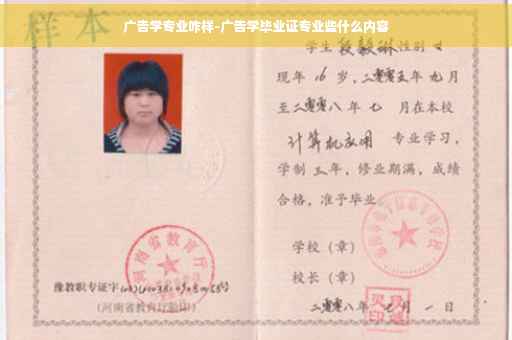 广告学专业咋样-广告学毕业证专业些什么内容
样本
学生 段毅琳 性别 女
现年 16 岁，二零零五年 九 月
至二零零八年 七 月在本校
计算机应用 专业学习，
学制 三 年，修业期满，成绩
合格，准予毕业
学校（章）
校长（章）
二零零八年 七 月 一 日
河南省教育厅
豫教职专证字
（河南省教育厅验印）